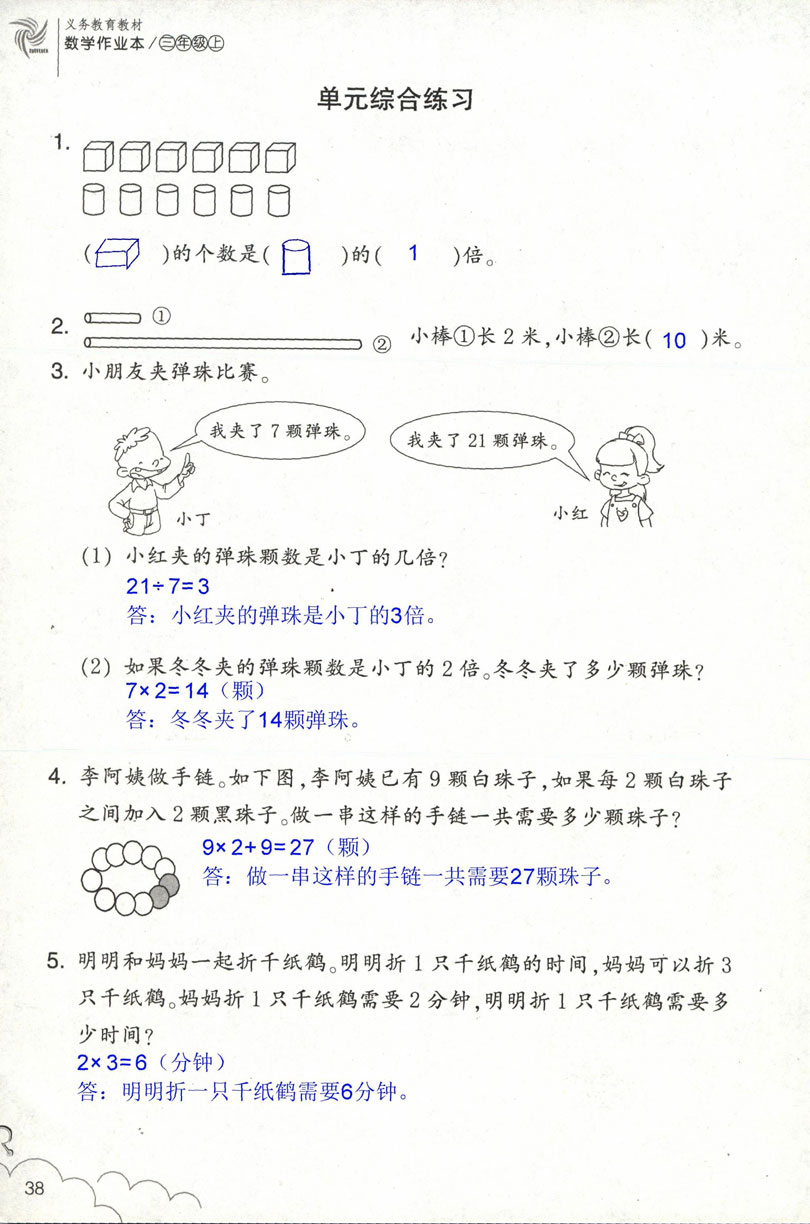 义务教育教材
数学作业本/三年级上
单元综合练习
1.
( )的个数是( )的( 1 )倍。
2. ① ② 小棒①长 2 米,小棒②长( 10 )米。
3. 小朋友夹弹珠比赛。
我夹了 7 颗弹珠。
我夹了 21 颗弹珠。
小丁
小红
(1) 小红夹的弹珠颗数是小丁的几倍?
21÷7=3
答：小红夹的弹珠是小丁的3倍。
(2) 如果冬冬夹的弹珠颗数是小丁的 2 倍。冬冬夹了多少颗弹珠?
7×2=14（颗）
答：冬冬夹了14颗弹珠。
4. 李阿姨做手链。如下图,李阿姨已有 9 颗白珠子,如果每 2 颗白珠子
之间加入 2 颗黑珠子。做一串这样的手链一共需要多少颗珠子?
9×2+9=27（颗）
答：做一串这样的手链一共需要27颗珠子。
5. 明明和妈妈一起折千纸鹤。明明折 1 只千纸鹤的时间,妈妈可以折 3
只千纸鹤。妈妈折 1 只千纸鹤需要 2 分钟,明明折 1 只千纸鹤需要多
少时间?
2×3=6（分钟）
答：明明折一只千纸鹤需要6分钟。
38